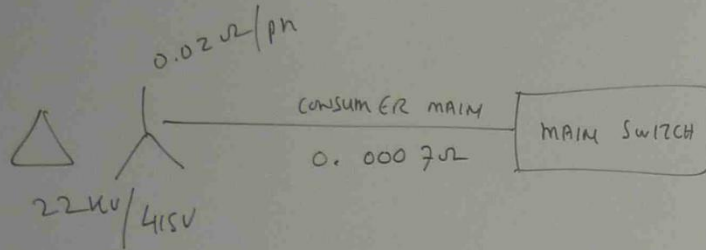 0.02Ω/ph
CONSUMER MAIN
0.0007Ω
MAIN SWITCH
22KV/415V